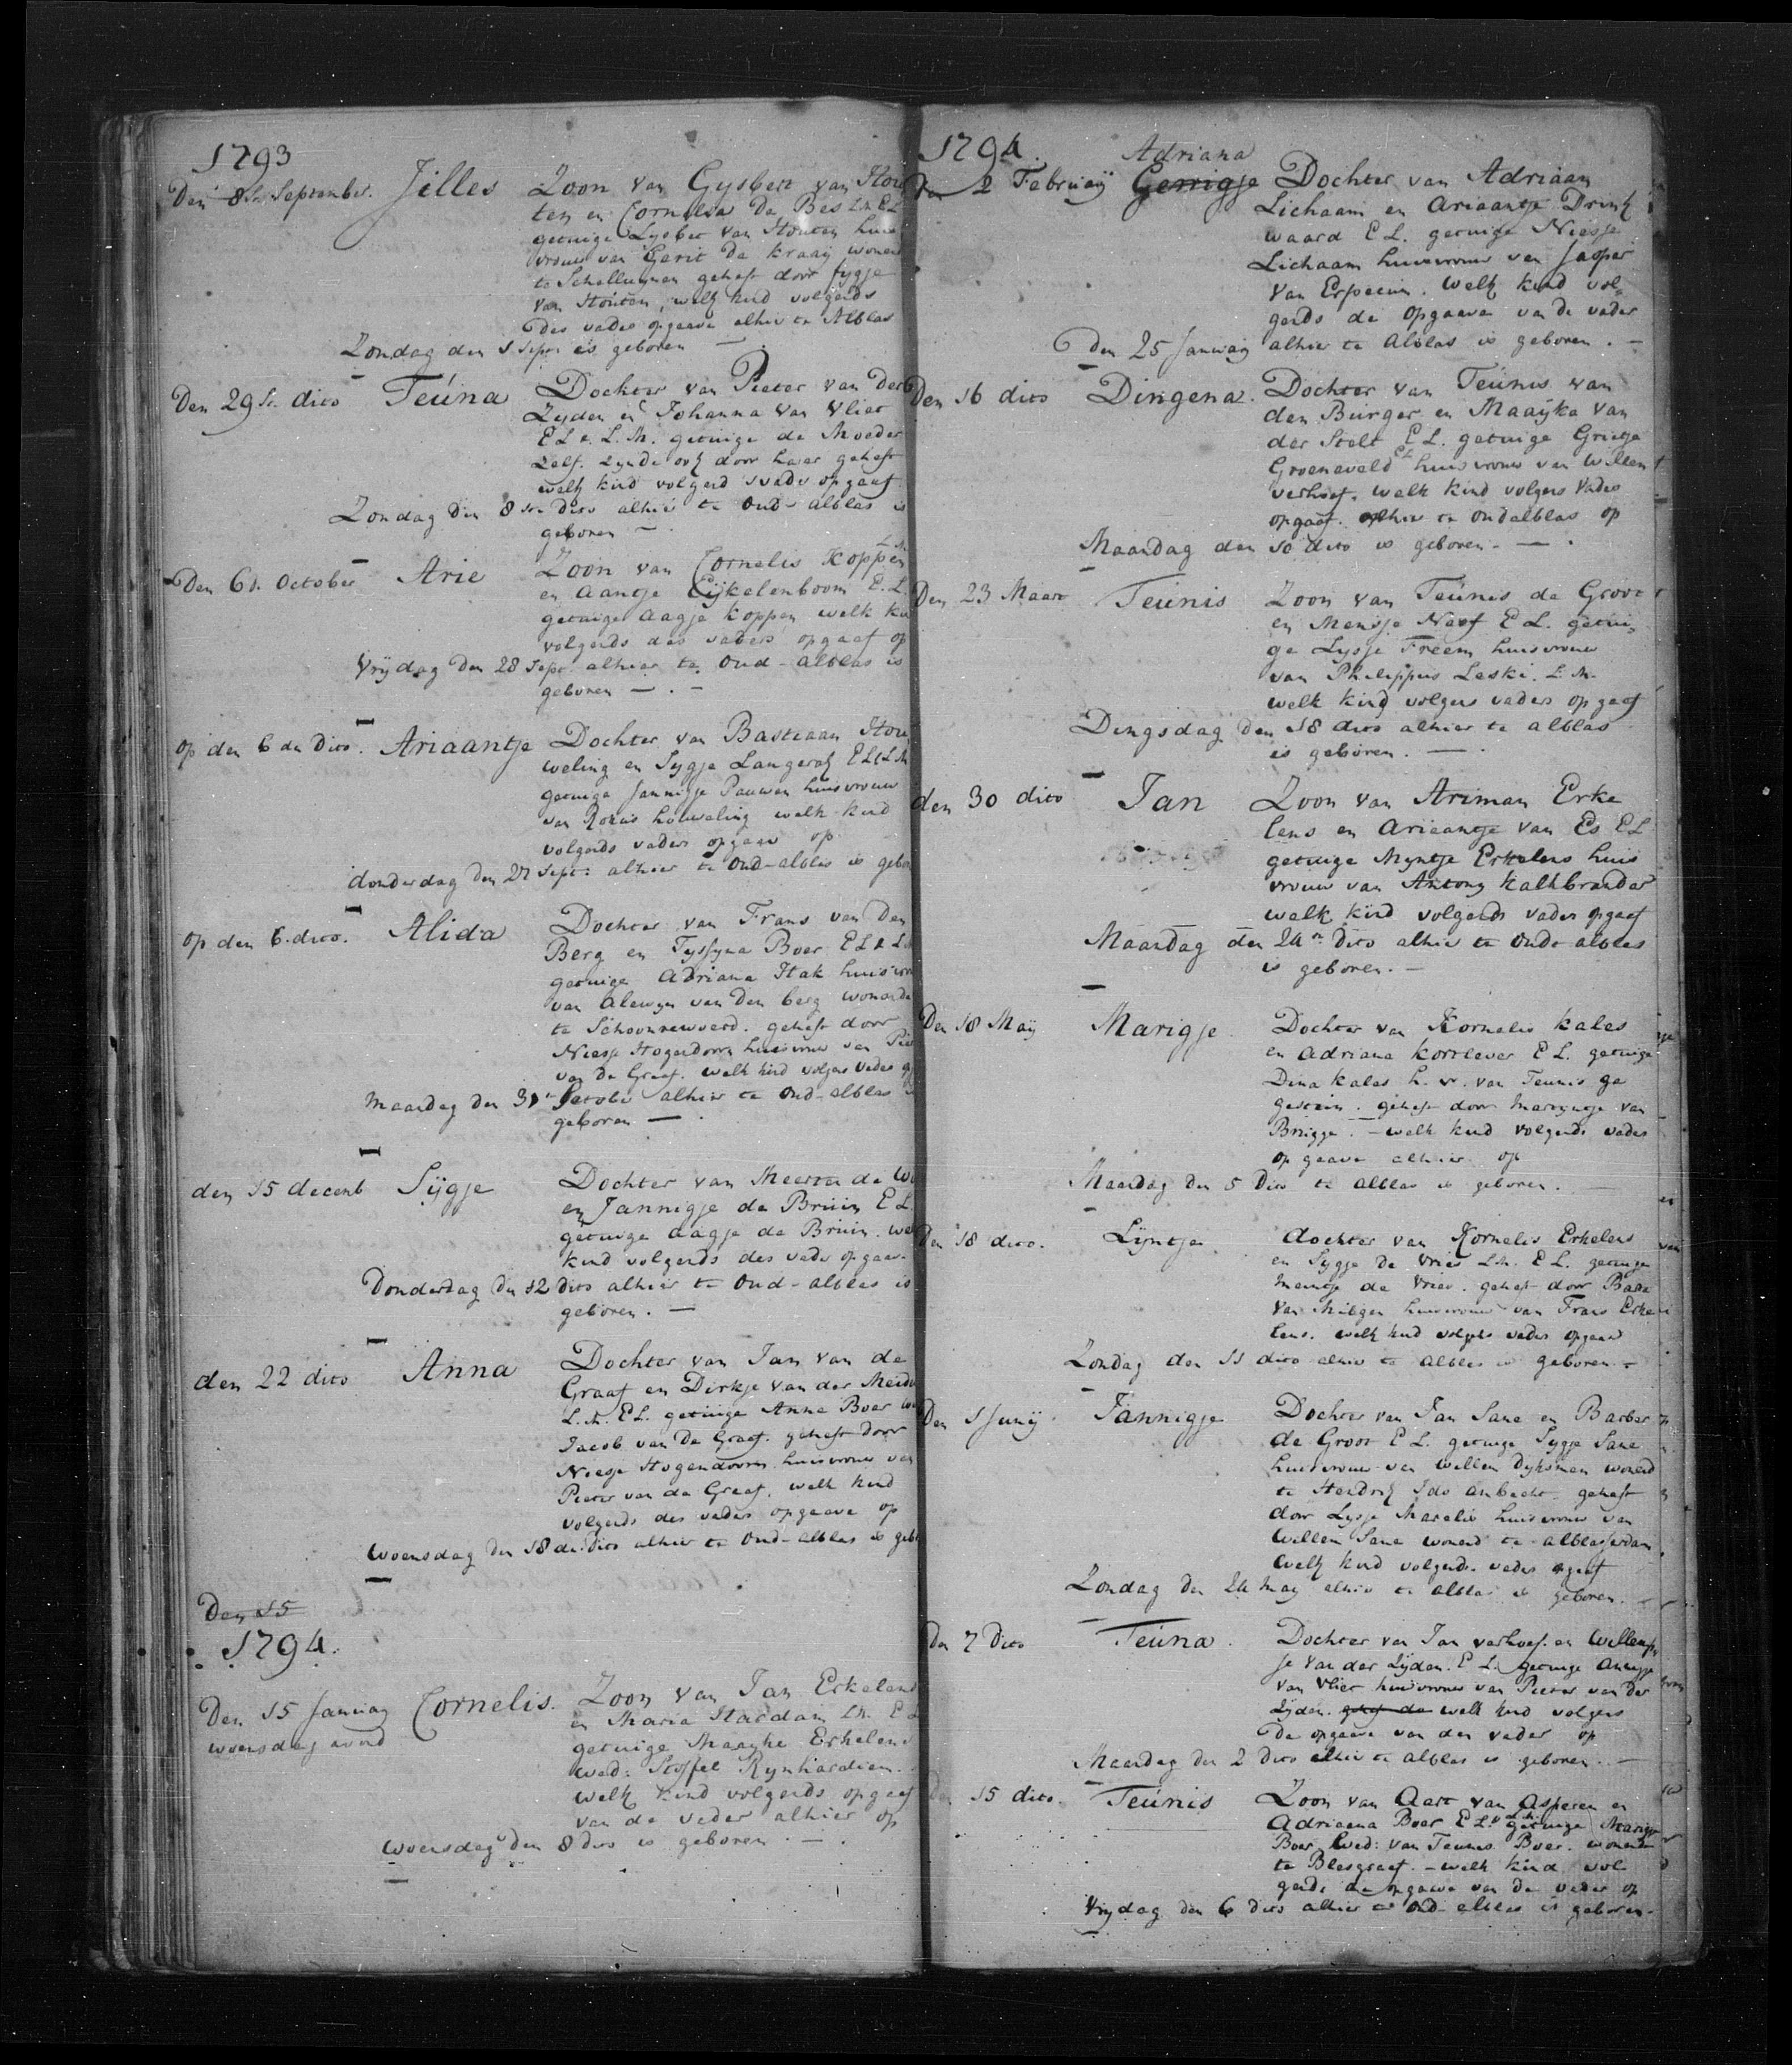 1793
Den 8ste September. Jilles Zoon van Gysbert van Hou
ten en Cornelia De Bes LM EL
getuige Lysbet van Houten huis
vrouw van Gerit De Kraaij wonen
te Schelluinen geheft door fygje
van Houten, welk kind volgends
des vaders opgaave alhier te Alblas
Zondag den 1 Sept. is geboren —
Den 29ste dito Teúna Dochter van Pieter van Der
Zyden en Johanna van Vliet
EL e. L.M. getuige de Moeder
zelf. zynde ook door haar geheft
welk kind volgend svaders opgaaf
Zondag Den 8ste Dito alhier te Oud-alblas is
geboren —
Den 6d. October Arie Zoon van Cornelis Koppen L.M.
en Aantje Eijkelenboom E.L.
getuige Aagje Koppen welk ki
volgends des vaders opgaaf op
Vrijdag den 28 Sept. alhier te Oud-alblas is
geboren — . —
op den 6 de Dito. Ariaantje Dochter van Bastiaan Hou
weling en Sygje Langerak EL & LM
getuige Jannigje Pauwen huisvrouw
van Rokus houweling welk kind
volgends vaders opgaav op
donderdag den 27 Sept: alhier te Oud-alblas is gebor
op den 6. dito. Alida Dochter van Frans van Den
Berg en Tyssyna Boer EL & LM
getuige Adriana Hak huisvro
van Alewyn van Den berg wonende
te Schoonrewoerd. geheft door
Niesje Hogendoorn huisvrouw van Piet
van De Graaf. welk kind volgens vaders
Maandag den alhier te Oud-alblas
geboren — .
den 15 decemb Sijgje Dochter van Meerten de
en Jannigje de Bruin E L.
getuige Aagje de Bruin. we
kind volgends des vaders opgaav.
Donderdag den 12 dito alhier te Oud-alblas is
geboren. —
den 22 dito Anna Dochter van Jan van de
Graaf en Dirkje van der Meide
L.M. EL. getuige Anna Boer
Jacob van De Graaf. geheft door
Niesje Hogendoorn huisvrouw van
Pieter van de Graaf. welk kind
volgends des vaders opgaave op
Woensdag den 18 de. dito alhier te Oud-alblas is geb
Den 15
1794.
Den 15 Januarij Cornelis. Zoon van Jan Erkelens
woensdag avond en Maria Hardam LM. E L
getuige Maayke Erkelens
wed: Stoffel Rynhardien.
welk kind volgends opgaaf
van de vader alhier op
woensdag den 8 dito is geboren. — .
1794. Adriana
Den 2 Februarij Gerrigje Dochter van Adriaan
Lichaam en Ariaantje Drink
waard E L. getuige Niesje
Lichaam huisvrouw van Jasper
van Erpecum. welk kind vol„
gends de opgaave van de vader
den 25 Januarij alhier te Alblas is geboren. —
Den 16 dito Dingena. Dochter van Teúnis van
den Burger en Maaijke van
der Stelt E L. getuige Grietje
Groeneveld EL huisvrouw van Willem
verhoef. welk kind volgens vaders
opgaaf. alhier te Oudalblas op
Maandag den 10 dito is geboren. — .
Den 23 Maart Teúnis Zoon van Teúnis de Groot
en Mensje Neef E L. getui„
ge Lysje Treem huisvrouw
van Philippus Leski. L.M.
welk kind volgens vaders opgaaf
Dingsdag den 18 dito alhier te alblas
is geboren. — .
den 30 dito Jan Zoon van Ariman Erke
lens en Ariaantje van Es EL
getuige Myntje Erkelens huis
vrouw van Antony kalkbrander
welk kind volgends vaders opgaaf
Maandag den 24n dito alhier te Oude alblas
is geboren. —
Den 18 Maij Marigje Dochter van Kornelis kales
en Adriana kortlever E L. getuige
Dina kales h. v. van Teunis ge
gestein. geheft door Marrigtje van
Brugge. — welk kind volgends vaders
opgaave alhier op
Maandag den 5 Dito te alblas is geboren. —
Den 18 dito. Lijntje dochter van Kornelis Erkelens
en Sygje De Vries LM. E L. getuige
Meintje de Vries. geheft door Baba
van Milegen huisvrouw van Frans Erke
lens. welk kind volgens vaders opgaav
Zondag den 11 dito alhier te alblas is geboren. —
Den 1 Junij Jannigje Dochter van Jan Sane en Barber
de Groot E L. getuige Sygje Sane
huisvrouw van Willem Dyksman wonend
te Hendrik Ido ambacht geheft
door Lysje Marelis huisvrouw van
Willem Sane wonend te alblasserdam
welk kind volgends vaders opgaaf
Zondag den 24 May alhier te alblas is geboren. —
Den 7 Dito Teúna. Dochter van Jan verhoef. en Willemp
je van der Zijden. E L. getuige Annigje
van Vliet huisvrouw van Pieter van der
Zijden. welk kind volgens
De opgaave van den vader op
Maandag den 2 Dito alhier te alblas is geboren. —
15 dito. Teúnis Zoon van Aart van Asperen en
Adriaana Boer E L & LM. getuige Marigje
Boer Wed: van Teunis Boer. wonende
te Blesgraaf. — welk kind vol
gends de opgaave van de vader op
Vrijdag den 6 dito alhier te Oud alblas is geboren.